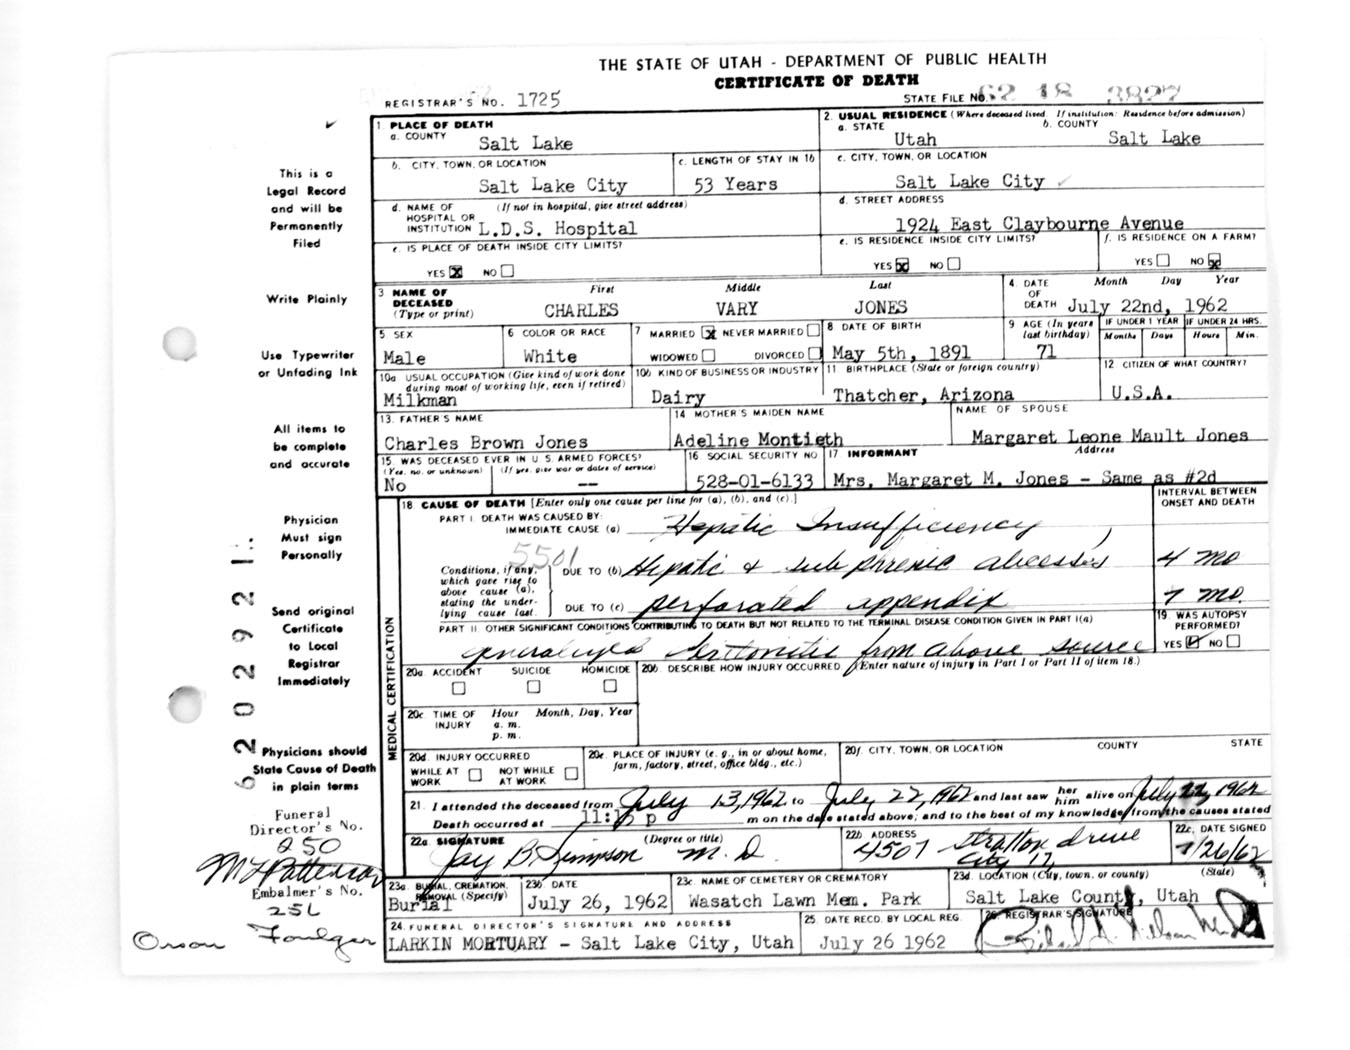 THE STATE OF UTAH - DEPARTMENT OF PUBLIC HEALTH
CERTIFICATE OF DEATH
REGISTRAR'S NO. 1725
STATE FILE NO. 62 18 3827
This is a
Legal Record
and will be
Permanently
Filed
Write Plainly
Use Typewriter
or Unfading Ink
All items to
be complete
and accurate
Physician
Must sign
Personally
Send original
Certificate
to Local
Registrar
Immediately
Physicians should
State Cause of Death
in plain terms
Funeral
Director's No.
250
M L Patterson
Embalmer's No.
256
Orson Foulger
1. PLACE OF DEATH
a. COUNTY
Salt Lake
2. USUAL RESIDENCE (Where deceased lived. If institution: Residence before admission)
a. STATE b. COUNTY
Utah Salt Lake
b. CITY, TOWN, OR LOCATION
Salt Lake City
c. LENGTH OF STAY IN 1b
53 Years
c. CITY, TOWN, OR LOCATION
Salt Lake City
d. NAME OF (If not in hospital, give street address)
HOSPITAL OR
INSTITUTION L.D.S. Hospital
d. STREET ADDRESS
1924 East Claybourne Avenue
e. IS PLACE OF DEATH INSIDE CITY LIMITS?
YES X NO
e. IS RESIDENCE INSIDE CITY LIMITS?
YES X NO
f. IS RESIDENCE ON A FARM?
YES NO X
3 NAME OF First Middle Last
DECEASED
(Type or print) CHARLES VARY JONES
4. DATE Month Day Year
OF
DEATH July 22nd, 1962
5 SEX
Male
6 COLOR OR RACE
White
7 MARRIED X NEVER MARRIED
WIDOWED DIVORCED
8 DATE OF BIRTH
May 5th, 1891
9 AGE (In years
last birthday)
71
IF UNDER 1 YEAR IF UNDER 24 HRS.
Months Days Hours Min.
10a. USUAL OCCUPATION (Give kind of work done
during most of working life, even if retired)
Milkman
10b KIND OF BUSINESS OR INDUSTRY
Dairy
11 BIRTHPLACE (State or foreign country)
Thatcher, Arizona
12 CITIZEN OF WHAT COUNTRY?
U.S.A.
13. FATHER'S NAME
Charles Brown Jones
14 MOTHER'S MAIDEN NAME
Adeline Montieth
NAME OF SPOUSE
Margaret Leone Mault Jones
15 WAS DECEASED EVER IN U. S. ARMED FORCES?
(Yes, no, or unknown) (If yes, give war or dates of service)
No --
16 SOCIAL SECURITY NO
528-01-6133
17 INFORMANT Address
Mrs. Margaret M. Jones - Same as #2d
18 CAUSE OF DEATH [Enter only one cause per line for (a), (b), and (c).]
INTERVAL BETWEEN
ONSET AND DEATH
PART I. DEATH WAS CAUSED BY:
IMMEDIATE CAUSE (a) Hepatic Insufficiency
5501
Conditions, if any,
which gave rise to
above cause (a),
stating the under-
lying cause last.
DUE TO (b) Hepatic & sub phrenic abcesses 4 mo
DUE TO (c) perforated appendix 7 mo.
PART II. OTHER SIGNIFICANT CONDITIONS CONTRIBUTING TO DEATH BUT NOT RELATED TO THE TERMINAL DISEASE CONDITION GIVEN IN PART I(a)
generalized peritonitis from above source
19. WAS AUTOPSY
PERFORMED?
YES NO
MEDICAL CERTIFICATION
20a. ACCIDENT SUICIDE HOMICIDE
20b. DESCRIBE HOW INJURY OCCURRED (Enter nature of injury in Part I or Part II of item 18.)
20c TIME OF Hour Month, Day, Year
INJURY a. m.
p. m.
20d. INJURY OCCURRED
WHILE AT NOT WHILE
WORK AT WORK
20e. PLACE OF INJURY (e. g., in or about home,
farm, factory, street, office bldg., etc.)
20f. CITY, TOWN, OR LOCATION COUNTY STATE
21. I attended the deceased from July 13, 1962 to July 22, 1962 and last saw her him alive on July 22, 1962
Death occurred at 11:15 p m on the date stated above; and to the best of my knowledge, from the causes stated
22a. SIGNATURE (Degree or title)
Jay B. Simpson M. D.
22b. ADDRESS
4507 Stratton drive
City 17,
22c. DATE SIGNED
7/26/62
23a. BURIAL, CREMATION,
REMOVAL (Specify)
Burial
23b DATE
July 26, 1962
23c. NAME OF CEMETERY OR CREMATORY
Wasatch Lawn Mem. Park
23d. LOCATION (City, town, or county) (State)
Salt Lake County, Utah
24. FUNERAL DIRECTOR'S SIGNATURE AND ADDRESS
LARKIN MORTUARY - Salt Lake City, Utah
25. DATE RECD. BY LOCAL REG.
July 26 1962
26. REGISTRAR'S SIGNATURE
62029211